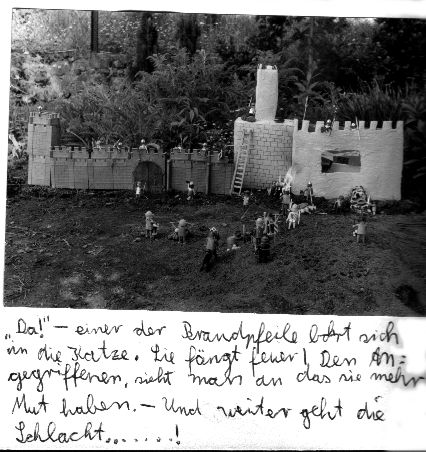 „Da!" – einer der Brandpfeile bohrt sich
in die Katze. Sie fängt feuer! Den An=
gegriffenen, sieht man an das sie mehr
Mut haben. – Und weiter geht die
Schlacht.......!